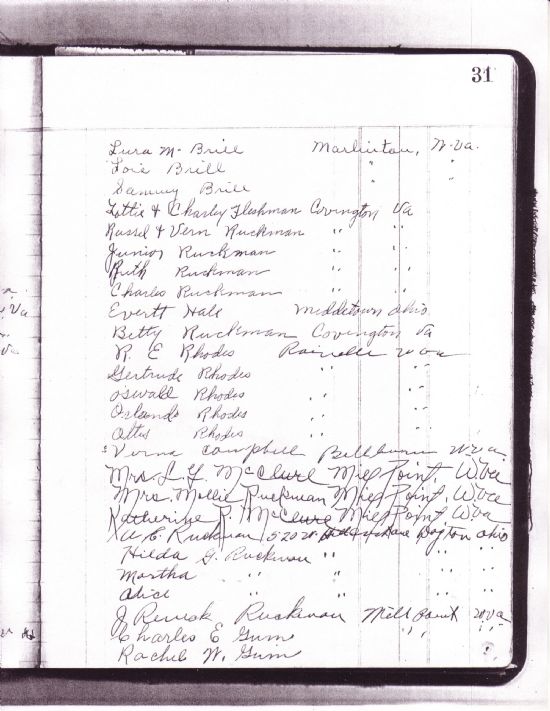 31
Lura M. Brill Marlinton, W-Va.
Lois Brill " "
Sammy Brill "
Lettie & Charley Fleshman Covington Va
Russel & Vern Ruckman " "
Junior Ruckman " "
Ruth Ruckman " "
Charles Ruckman " "
Evertt Hale Middletown Ohio
Betty Ruckman Covington Va
R. E Rhodes Rainelle W va
Gertrude Rhodes " "
Oswald Rhodes " "
Orlando Rhodes " "
Rhodes " "
Verna Campbell W. Va
Mrs. L. Y. McClure Mill Point, W.Va
Mrs. Mollie Ruckman Mill Point, W.Va
Katherine R. McClure Mill Point, W.Va
Ruckman Dayton Ohio
Hilda G. Ruckman " " "
Martha " " " "
Alice " " " "
J Ruckman Mill Point W va
Charles E Gum " "
Rachel W. Gum
Va
Va